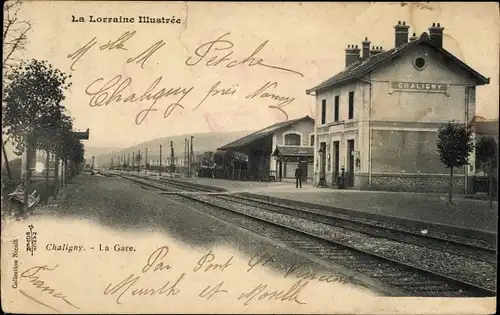 La Lorraine Illustrée
Mlle M Pesche
Chaligny près Nancy
CHALIGNY
Collection Nicoll
Chaligny. - La Gare.
Par Pont St Vincent
France Meurth et Moselle